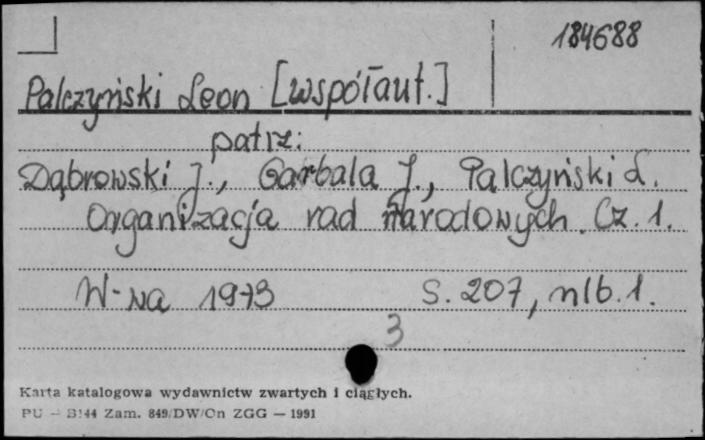 184688
Palczyński Leon [współaut.]
patrz:
Dąbrowski J., Garbala J., Palczyński L.
Organizacja rad narodowych. Cz. 1.
W-wa 1973 S. 207, nlb. 1.
3
Karta katalogowa wydawnictw zwartych i ciągłych.
PU – B/44 Zam. 849/DW/Cn ZGG — 1991